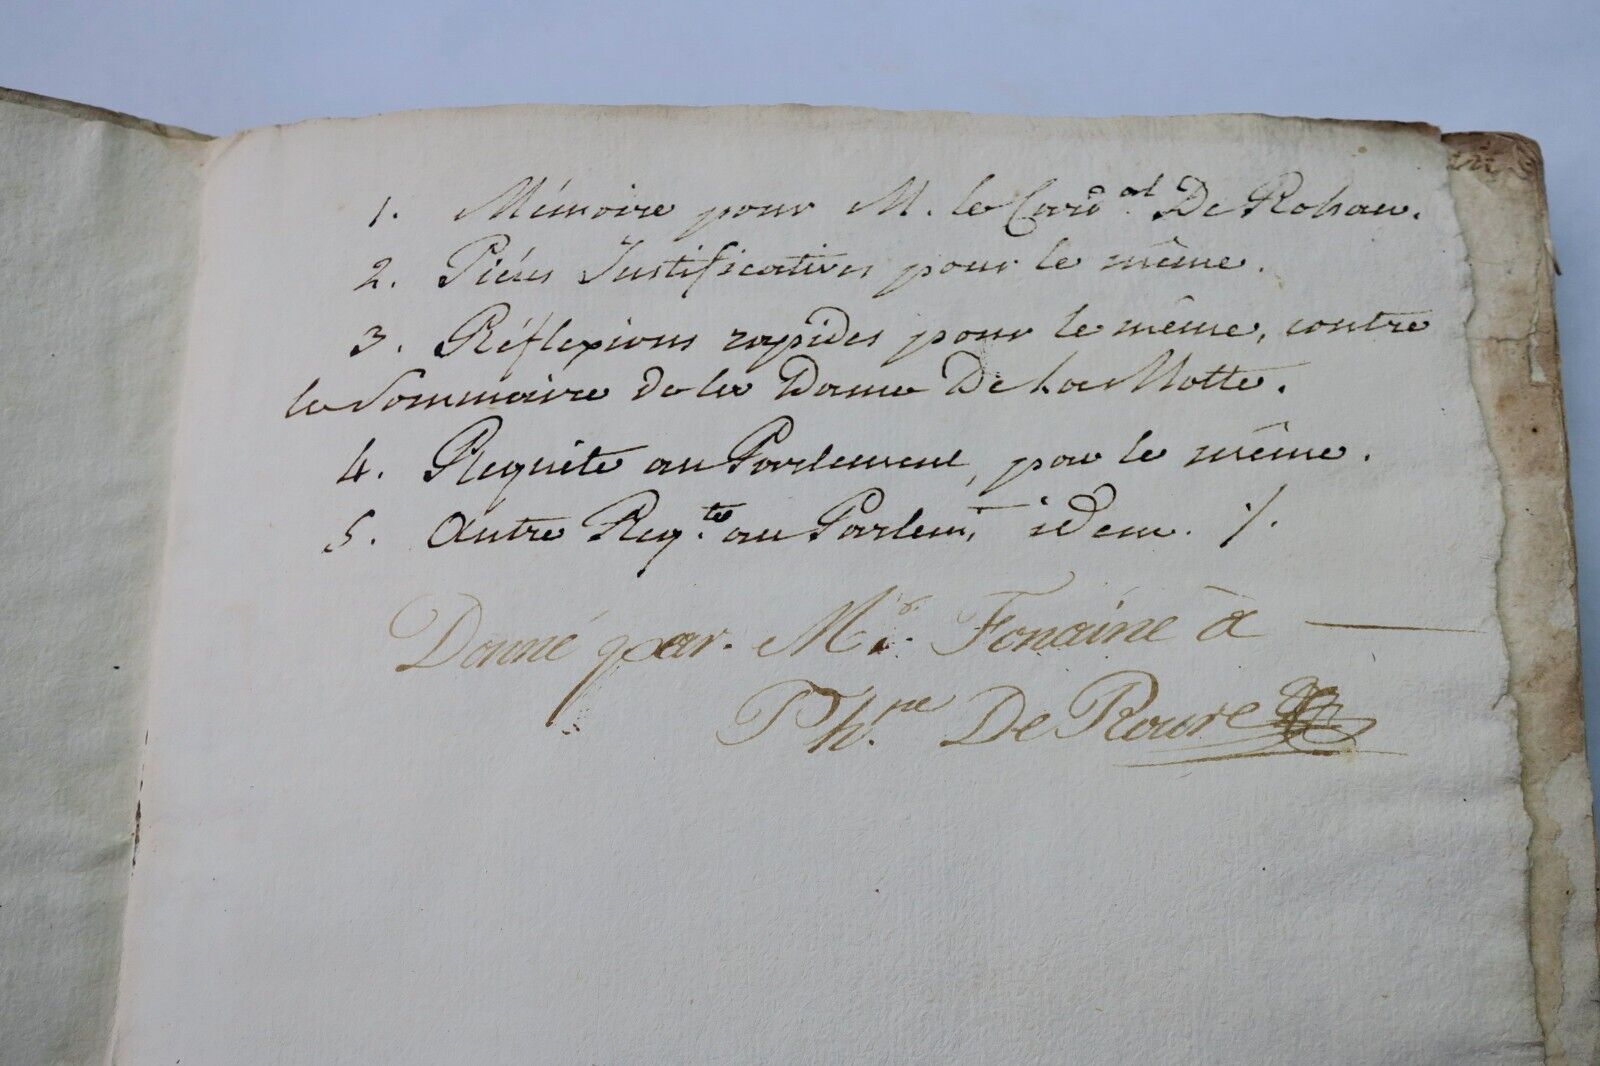 1. Mémoire pour M. le Card.al De Rohan.
2. Piéces Justificatives pour le même.
3. Réflexions rapides pour le même, contre
le Sommaire de la Dame De la Motte.
4. Requête au Parlement, pour le même.
5. Autre Req.te au Parlem.t idem. ·/.
Donné par. Mr. Fonaine à
Ph.pe De Roure